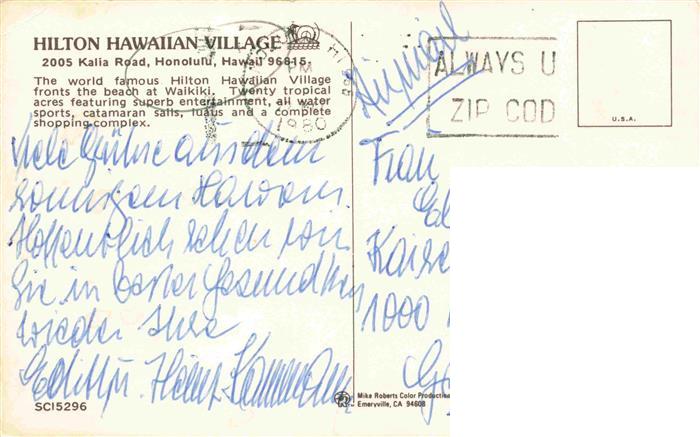 HILTON HAWAIIAN VILLAGE
2005 Kalia Road, Honolulu, Hawaii 96815
The world famous Hilton Hawaiian Village
fronts the beach at Waikiki. Twenty tropical
acres featuring superb entertainment, all water
sports, catamaran sails, luaus and a complete
shopping complex.
PM
1980
Airmail
ALWAYS U
ZIP COD
U.S.A.
Viele Grüße aus dem
sonnigen Hawaii.
Hoffentlich sehen wir
Sie in bester Gesundheit
wieder Ihre
Edith u. Heinz
Frau
Kaise
1000
Mike Roberts Color Productions
Emeryville, CA 94608
SC15296